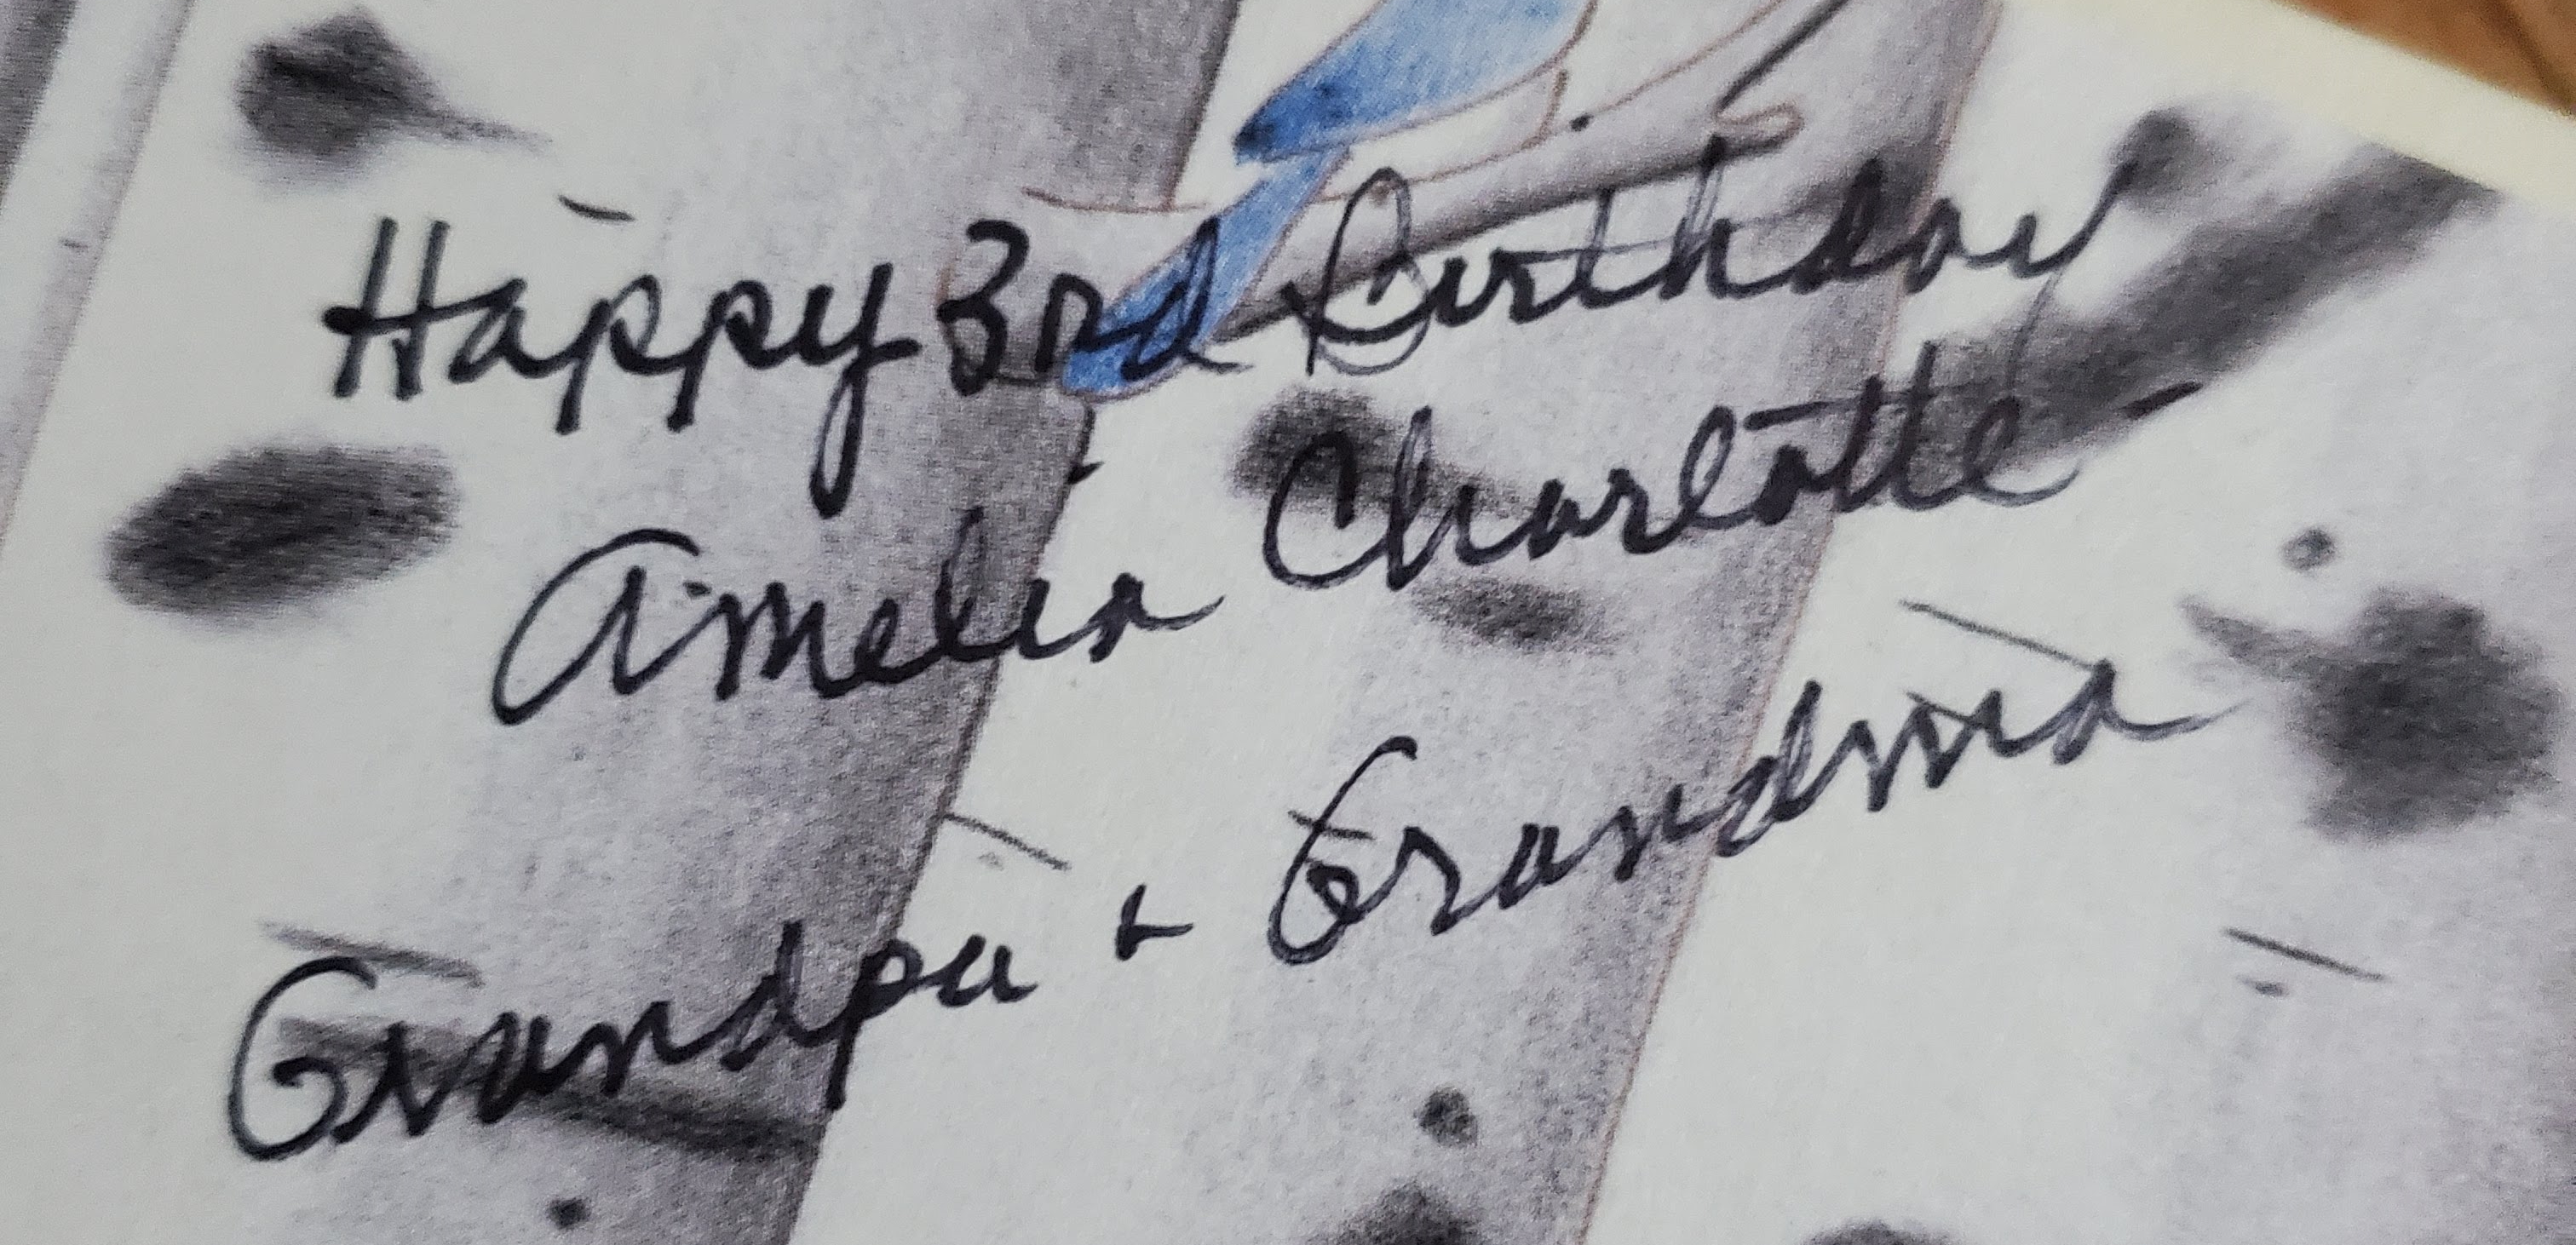 Happy 3rd Birthday
Amelia Charlotte -
Grandpa & Grandma